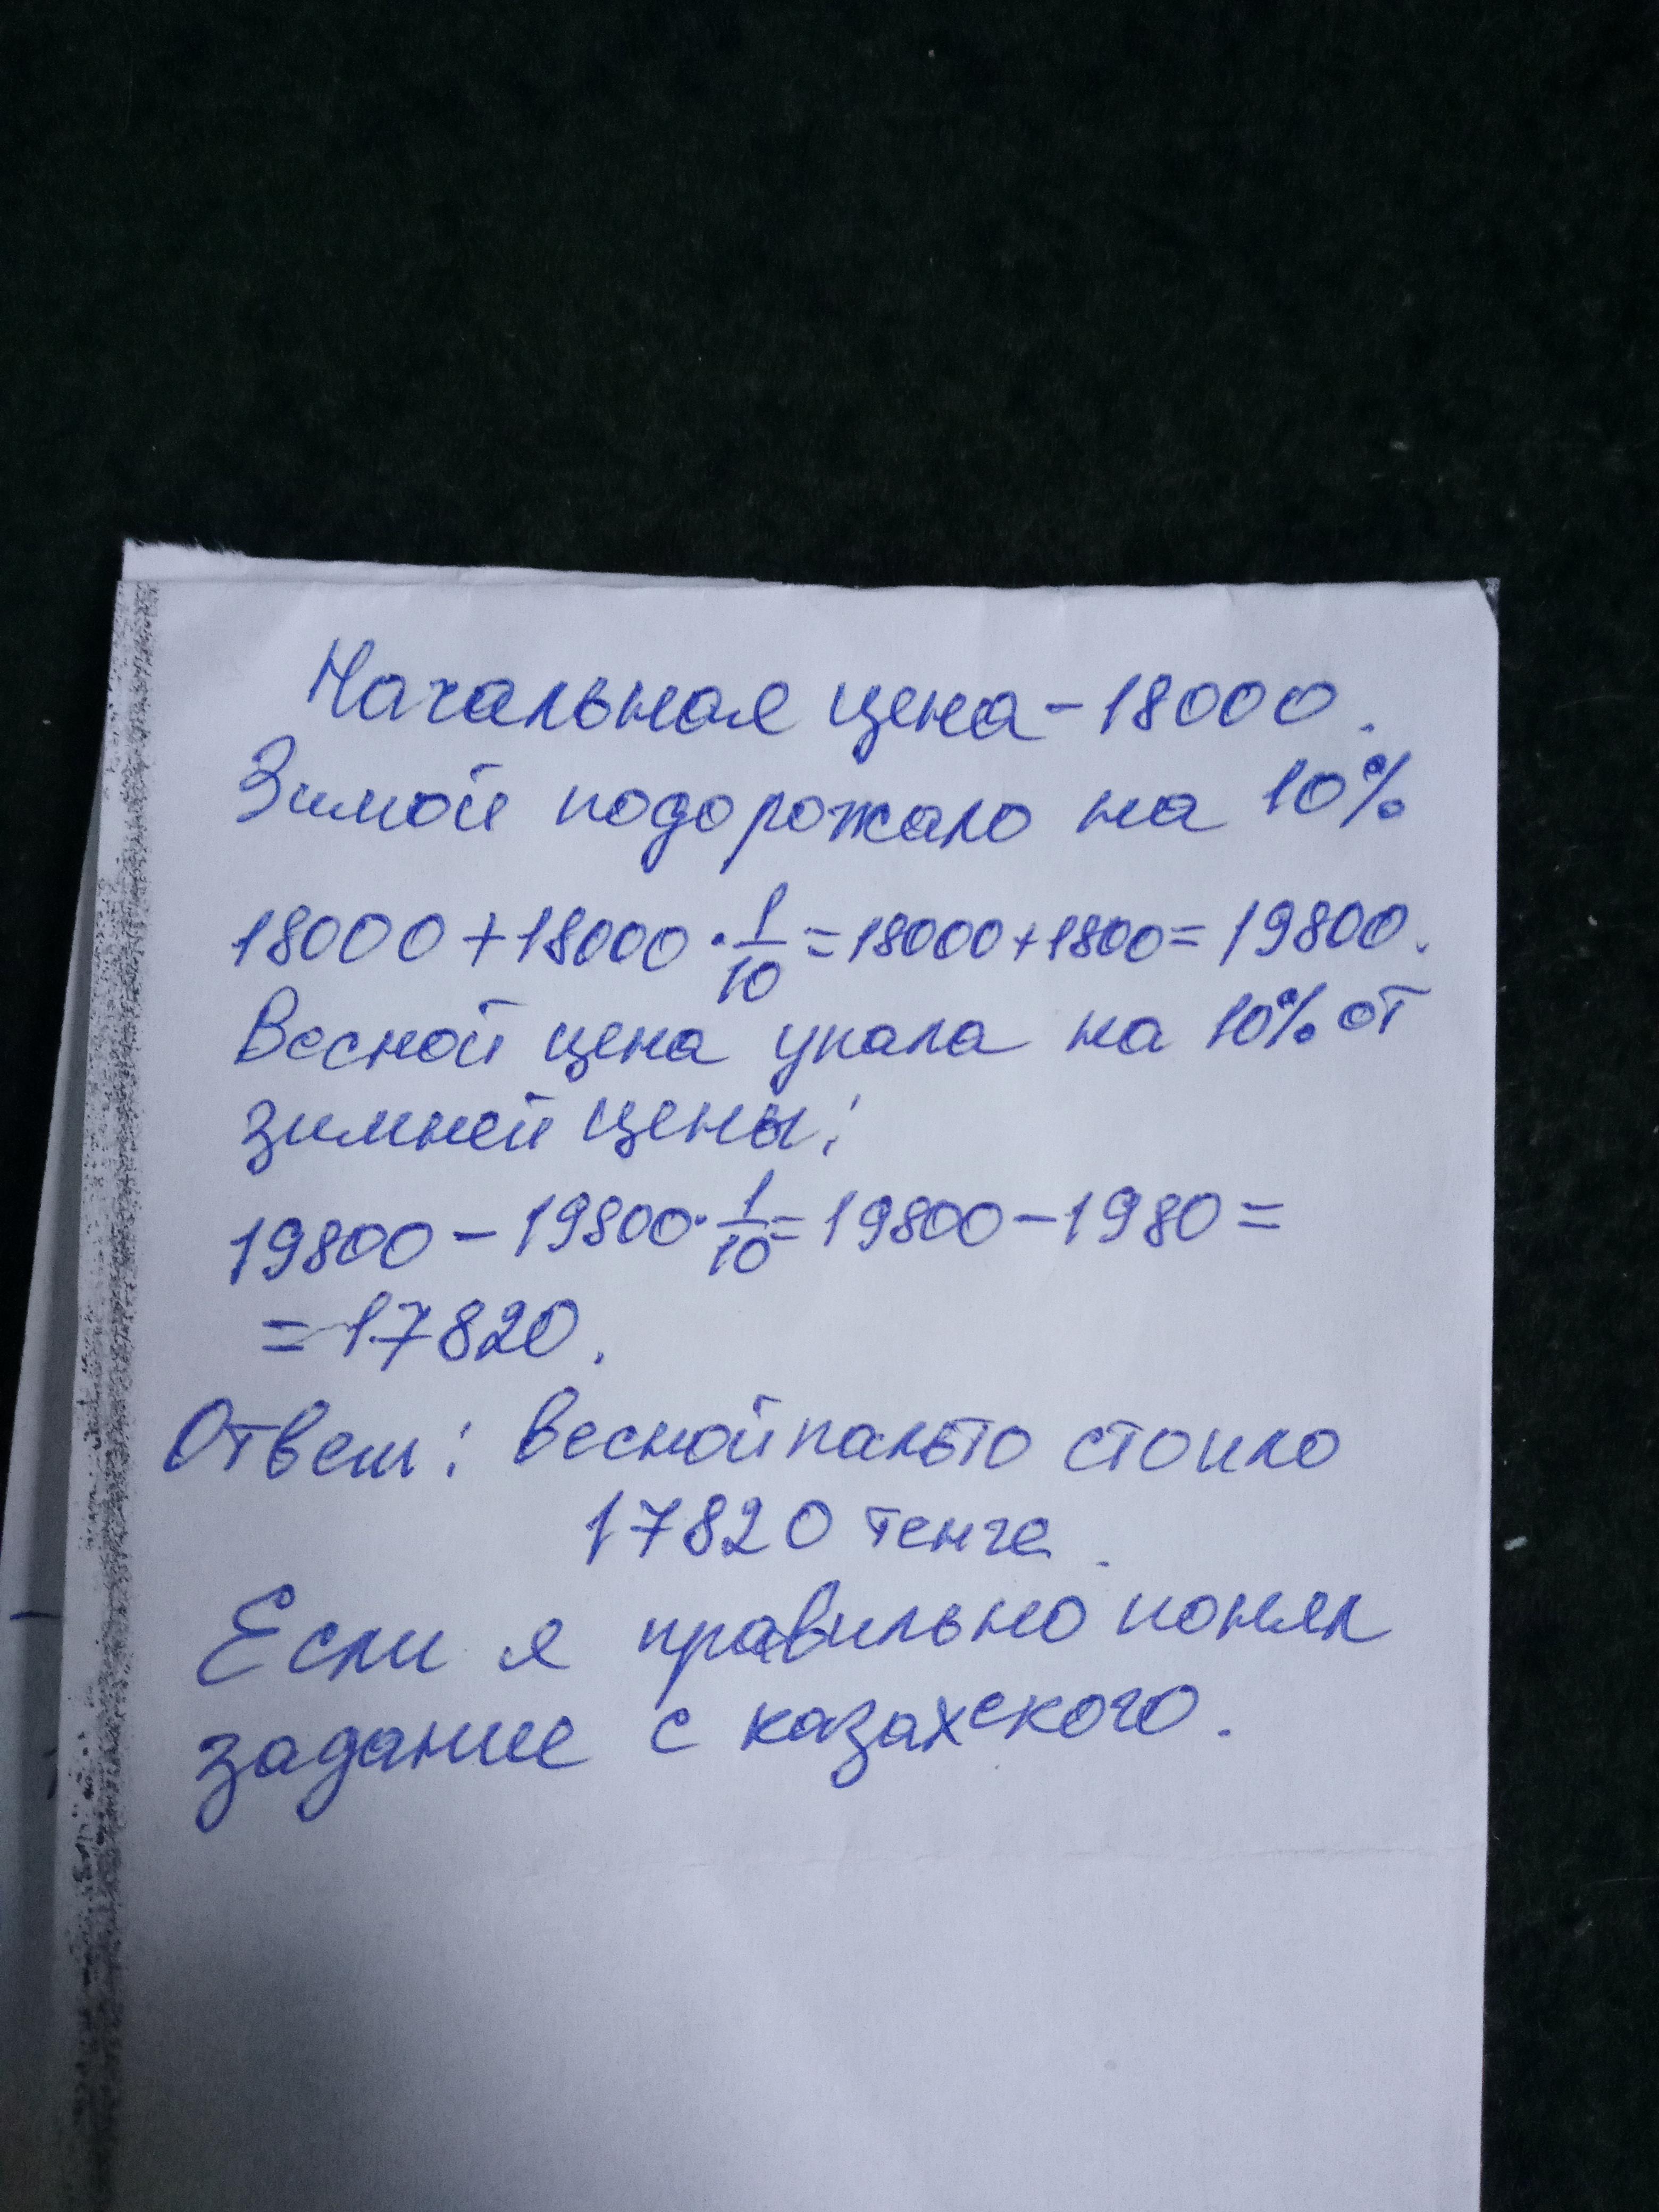 Начальная цена - 18000.
Зимой подорожало на 10%
18000 + 18000 · 1/10 = 18000 + 1800 = 19800.
Весной цена упала на 10% от
зимней цены:
19800 - 19800 · 1/10 = 19800 - 1980 =
= 17820.
Ответ: весной пальто стоило
17820 тенге.
Если я правильно понял
задание с казахского.